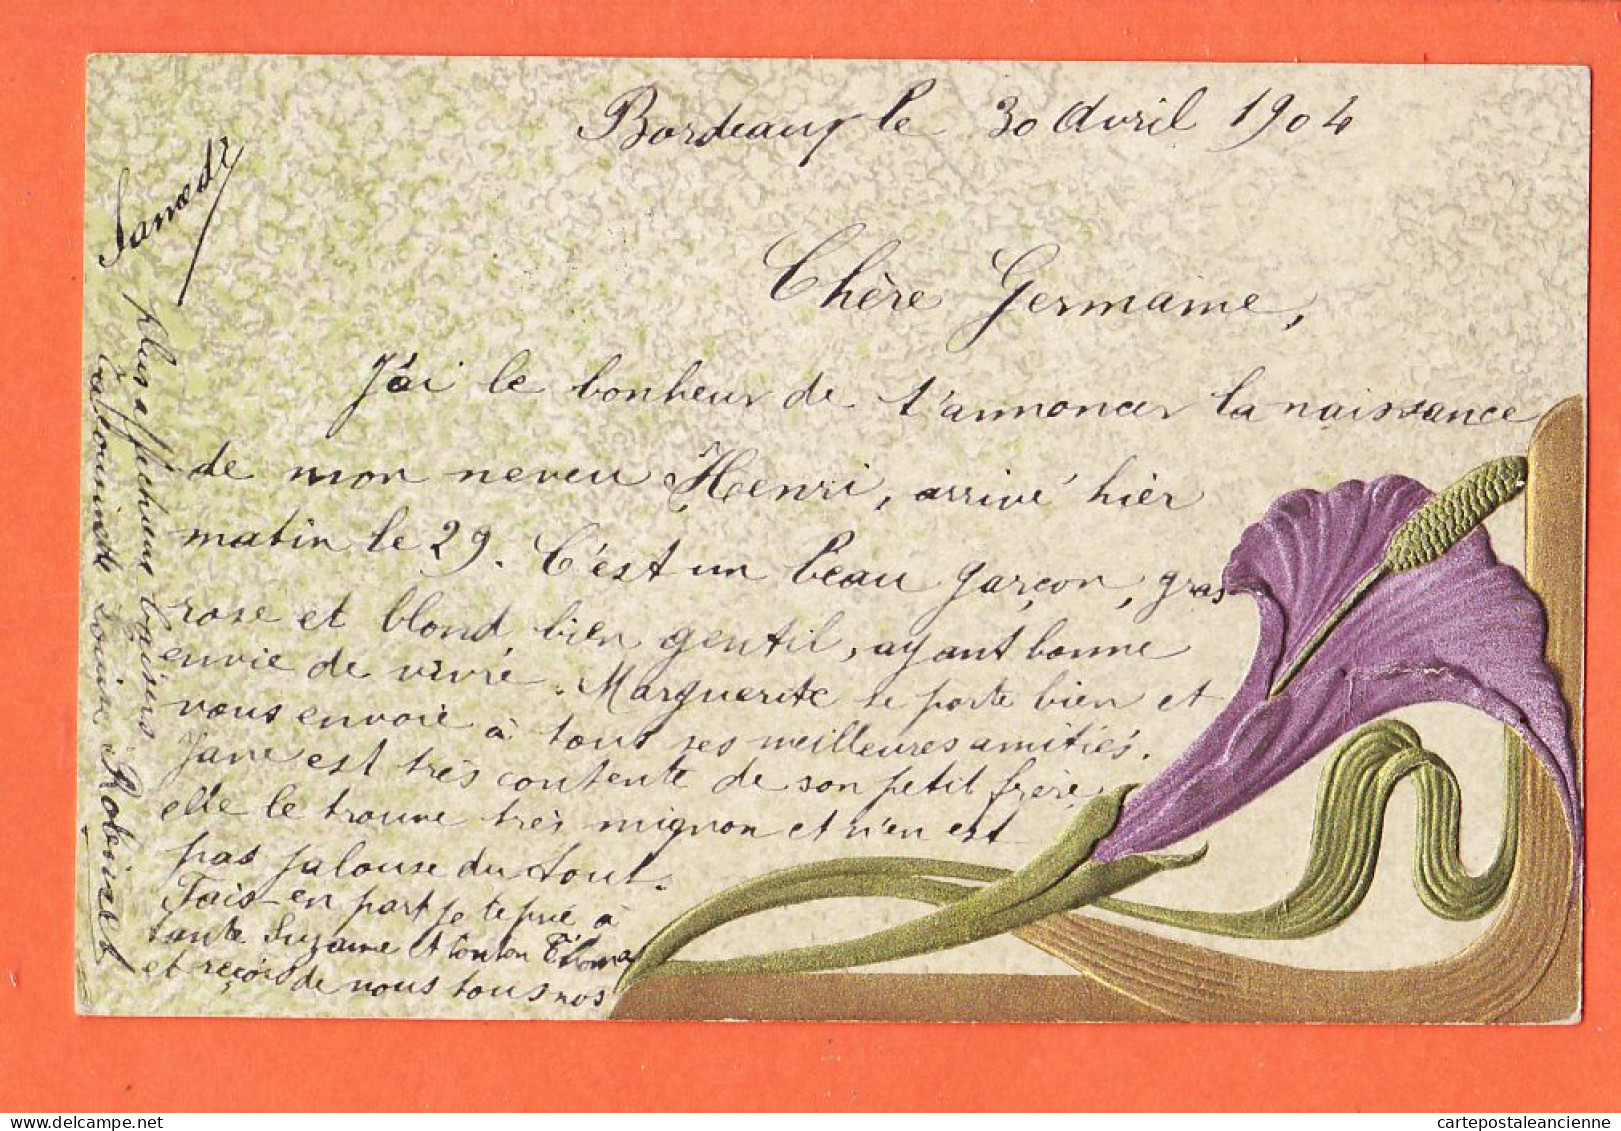 Bordeaux le 30 Avril 1904
Samedi
Chère Germaine,
J'ai le bonheur de t'annoncer la naissance
de mon neveu Henri, arrivé hier
matin le 29. C'est un beau garçon, gras
rose et blond, bien gentil, ayant bonne
envie de vivre. Marguerite se porte bien et
vous envoie à tous ses meilleures amitiés.
Jane est très contente de son petit frère,
elle le trouve très mignon et n'en est
pas jalouse du tout.
Fais-en part je te prie à
tante Suzanne et tonton Thomas
et reçois de nous tous nos
plus affectueux baisers
Ta cousine Louise Robinet
cartepostaleancienne